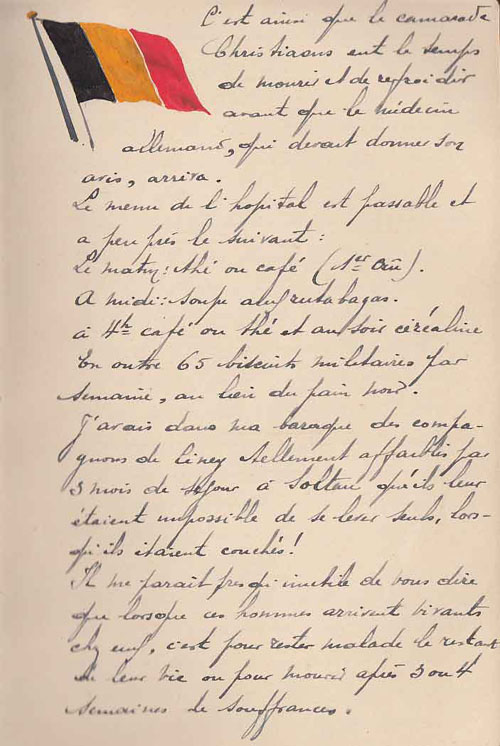 C'est ainsi que le camarade
Christiaens eut le temps
de mourir et de refroidir
avant que le médecin
allemand, qui devait donner son
avis, arriva.
Le menu de l'hopital est passable et
a peu près le suivant :
Le matin : thé ou café (1er Crû).
A midi : soupe aux rutabagas.
à 4h café ou thé et au soir céréaline
En outre 65 biscuits militaires par
semaine, au lieu du pain noir.
J'avais dans ma baraque des compa-
gnons de Ciney tellement affaiblis par
3 mois de séjour à Soltau qu'ils leur
étaient impossible de se lever seuls, lors-
qu'ils étaient couchés !
Il me parait presqu'inutile de vous dire
que lorsque ces hommes arrivent vivants
chez eux, c'est pour rester malade le restant
de leur vie ou pour mourir après 3 ou 4
semaines de souffrances.